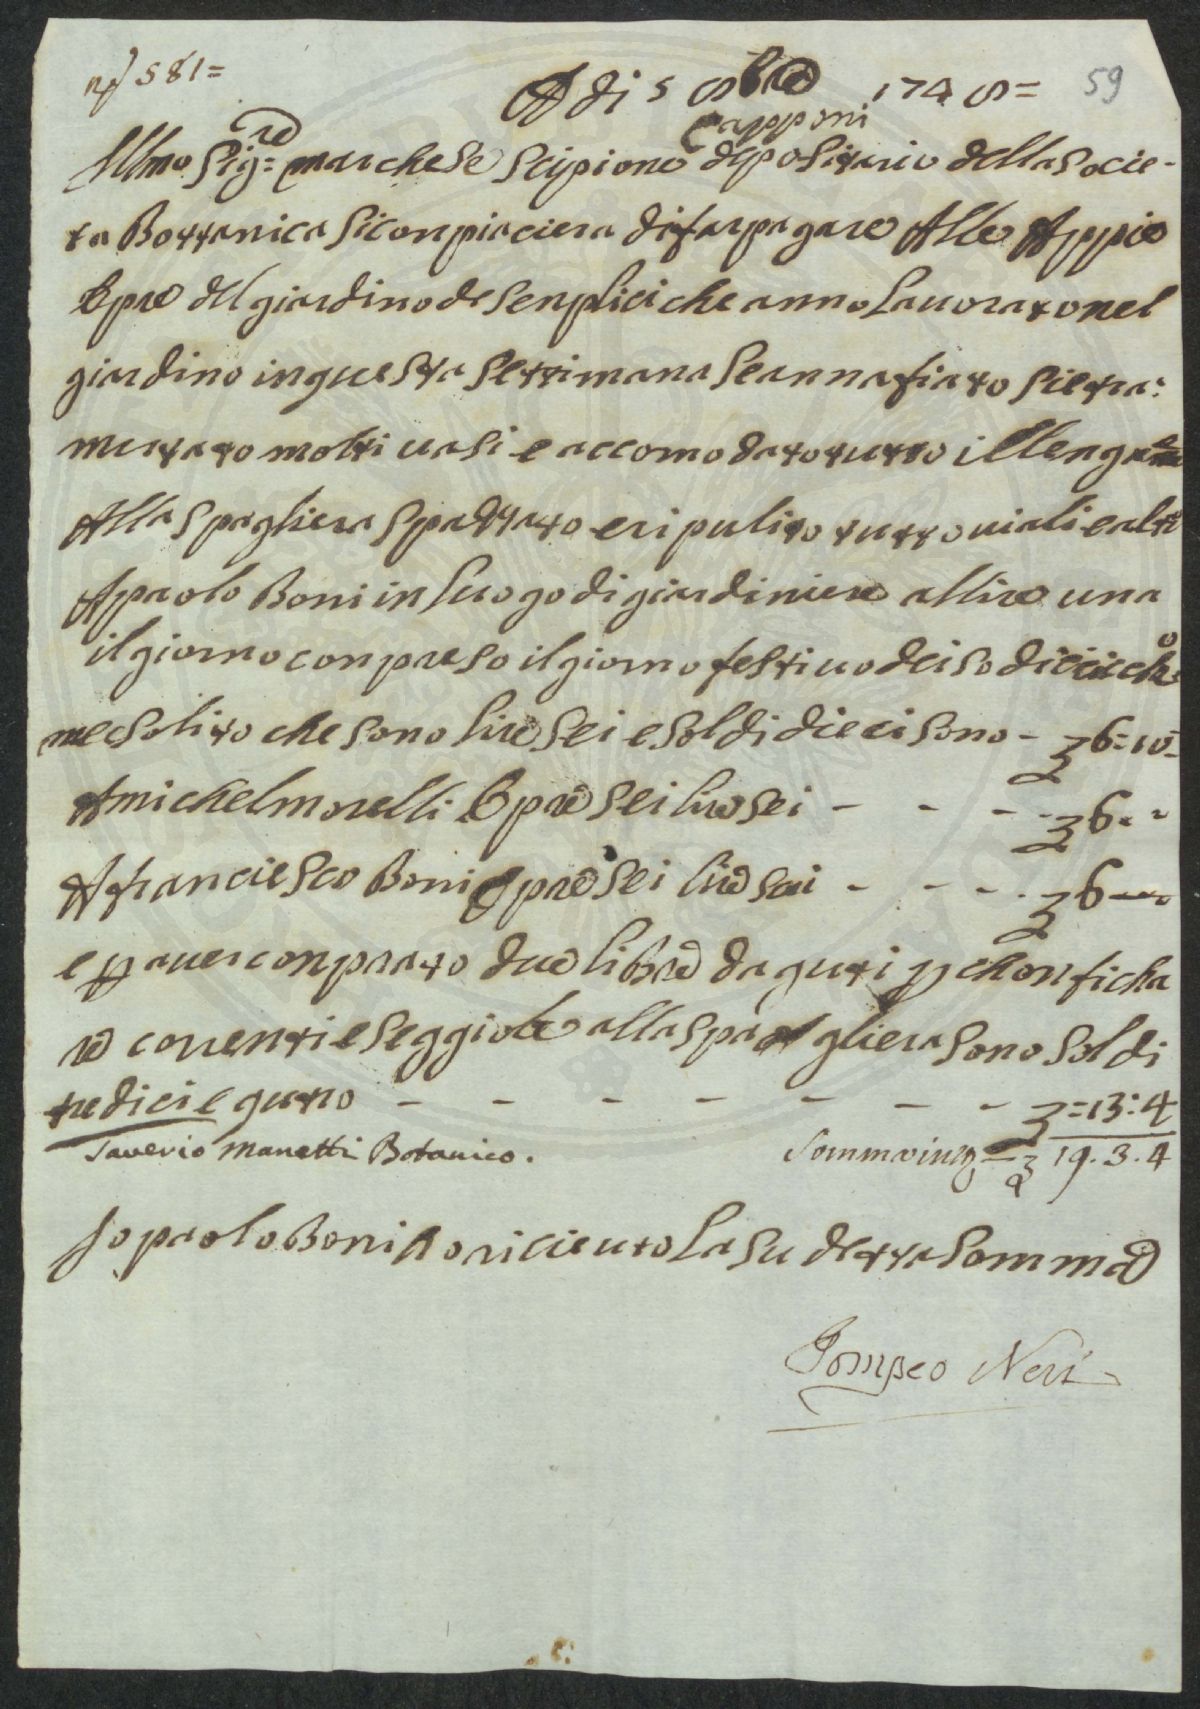 n° 581=
59
A di 5 8bre 1748=
Capponi
Illmo Sig:re marchese Scipione depositario della Socie-
ta Bottanica Si conpiaciera di far pagare Alle Appie
Opre del giardino de Senplici che anno Lauorato nel
giardino in questa Settimana Se annafiato Si e tra:
mutato molti uasi e accomodato tutto il
Alla Spagliera Spazzato e ripulito tutto uiali e altro
A paolo Boni in luogo di giardiniere a llire una
il giorno conpreso il giorno festiuo dei so dieici cho
me Solito che sono lire sei e Soldi dieci sono - £ 6=10=
A michel morelli Opre Sei lire sei - - - - £ 6= =
A franciesco Boni Opre Sei lire sei - - - £ 6
e p auer conprato due libre daguti p chonficha
re correnti e Seggiole alla Spagliera sono Soldi
tredici e quatro - - - - - - - £ =13:4
Saverio Manetti Botanico. Somma £ 19.3.4
Io paolo Boni ho riceuuto La Su detta Somma
Pompeo Neri